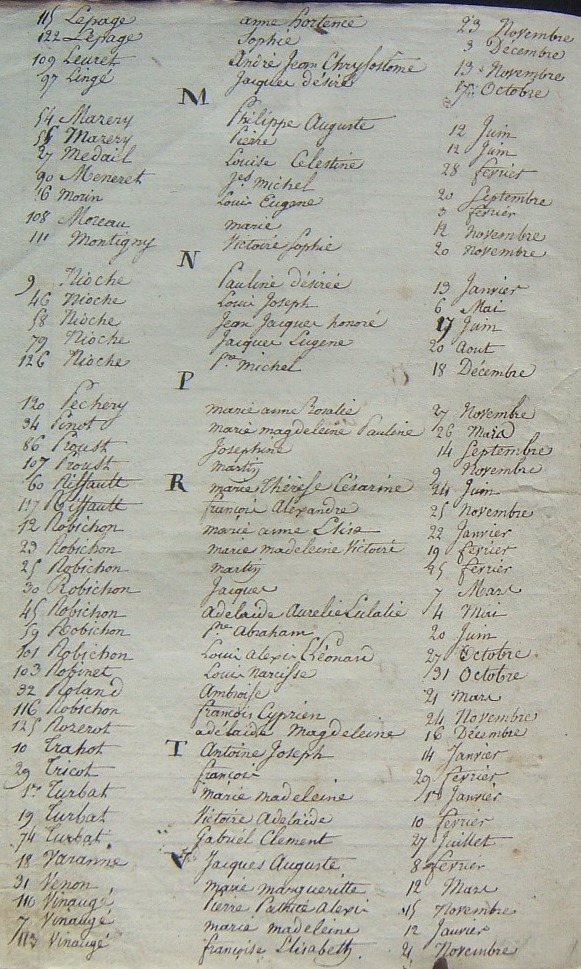 115 Lepage anne hortence 23 Novembre
122 Lepage Sophie 3 Décembre
109 Leuret André Jean Chrysostôme 13 Novembre
97 Lingé Jacques désiré 17 Octobre
M
54 Mazery Philippe Auguste 12 Juin
55 Mazery Pierre 12 Juin
27 Medail Louise Celestine 28 fevrier
90 Meneret michel 20 Septembre
16 Morin Louis Eugene 3 fevrier
108 Moreau marie 12 Novembre
111 Montigny Victoire Sophie 20 novembre
N
9 Nioche Pauline désirée 13 Janvier
46 Nioche Louis Joseph 6 Mai
58 Nioche Jean Jacques honoré 17 Juin
79 Nioche Jacques Eugene 20 Aout
126 Nioche michel 18 Décembre
P
120 Pechery marie anne Rosalie 27 Novembre
34 Pinot marie magdeleine Pauline 26
86 Proust Josephine 14 Septembre
107 Proust martin 9 Novembre
R
60 Riffault marie Thérèse Césarine 24 Juin
117 Riffault françois Alexandre 25 Novembre
12 Robichon marie anne Elise 22 Janvier
23 Robichon marie madeleine Victoire 19 fevrier
25 Robichon martin 25 fevrier
30 Robichon Jacques 7 Mars
45 Robichon Adelaide Aurelie Eulalie 4 Mai
59 Robichon Abraham 20 Juin
101 Robichon Louis alexis Léonard 27 Octobre
103 Robinet Louis Narcisse 31 Octobre
32 Roland Ambroise 21 Mars
116 Robichon françois Cyprien 24 Novembre
125 Rozerot adélaide Magdeleine 16 Décembre
T
10 Trahot Antoine Joseph 14 Janvier
29 Tricot françois 29 fevrier
Turbat marie madeleine Janvier
19 Turbat Victoire Adelaïde 10 fevrier
74 Turbat Gabriel Clement 27 Juillet
V
18 Varanne Jacques Auguste 8 fevrier
31 Venon marie margueritte 12 Mars
110 Vinaugé Pierre Alexis 15 Novembre
7 Vinaugé marie madeleine 12 Janvier
113 Vinaugé françoise Elisabeth 21 Novembre